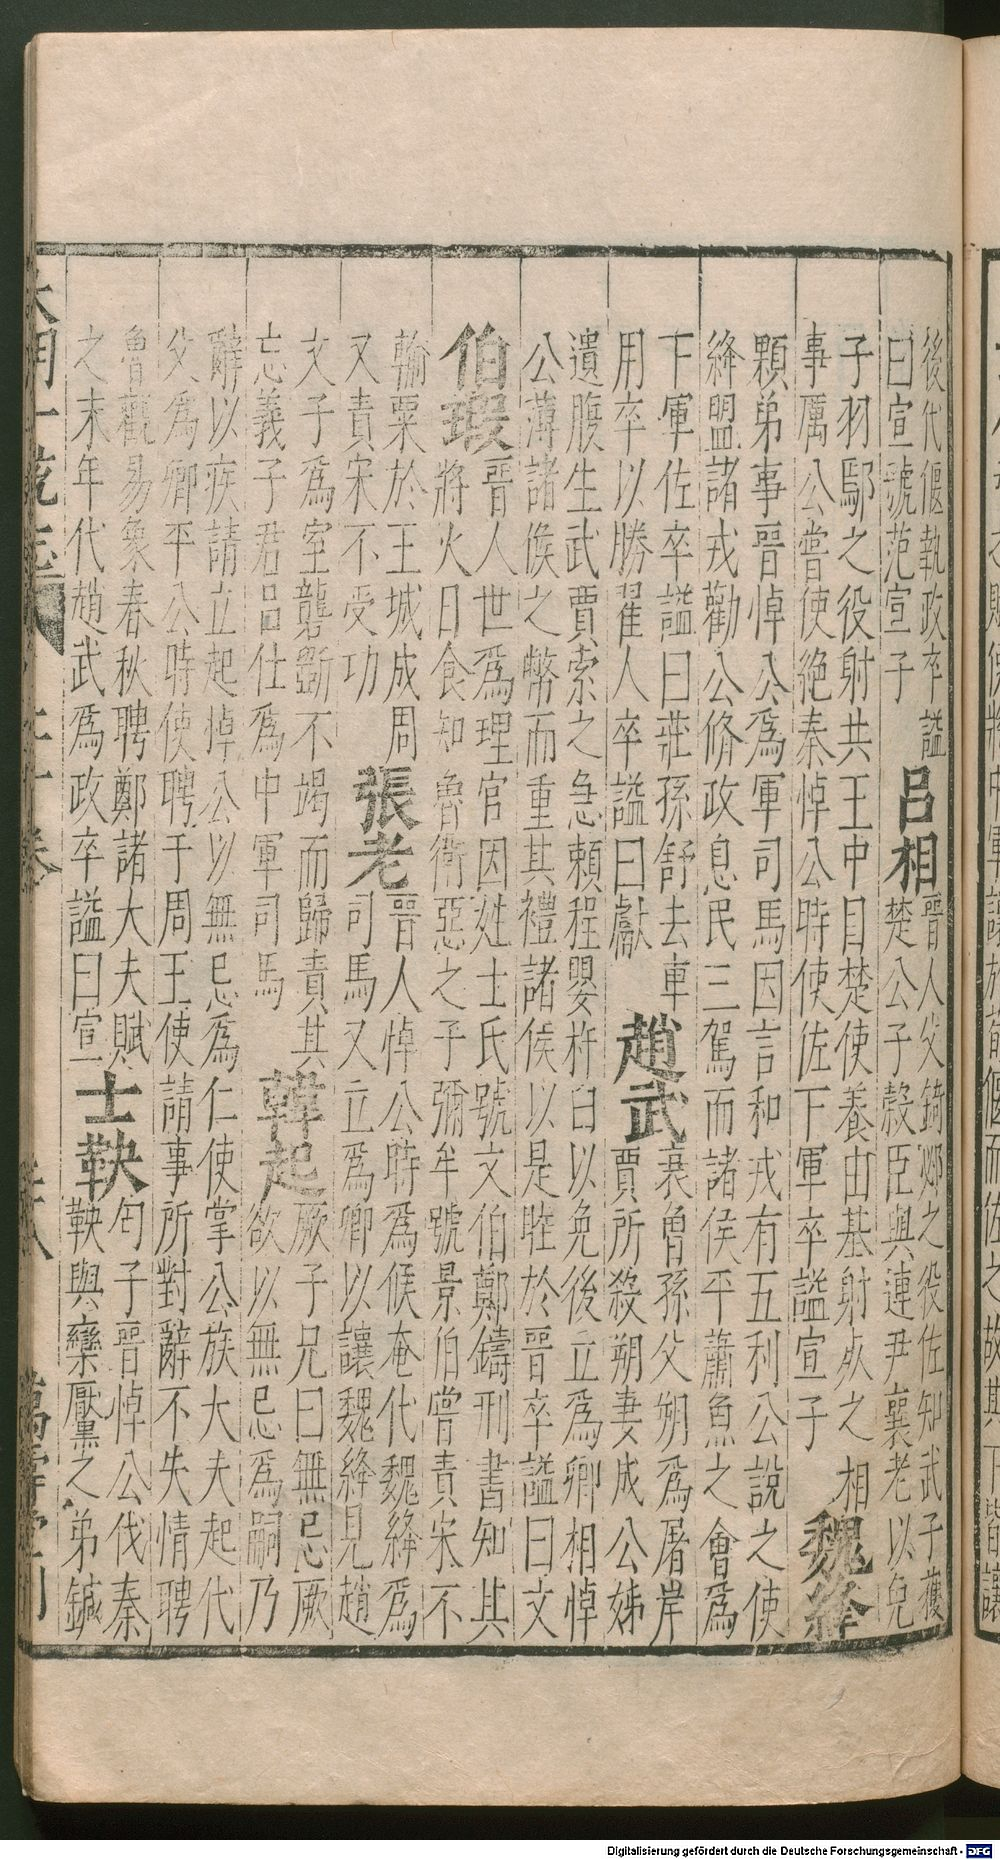 後代偃執政卒謚
曰宣號范宣子
呂相
晉人父錡鄢之役佐知武子獲
楚公子縠臣與連尹襄老以免
子羽鄢之役射共王中目楚使養由基射殺之 相
事厲公嘗使絕秦悼公時使佐下軍卒謚宣子
魏絳
顆弟事晉悼公為軍司馬因言和戎有五利公說之使
絳盟諸戎勸公脩政息民三駕而諸侯平蕭魚之會為
下軍佐卒謚曰莊孫舒去車
用卒以勝翟人卒謚曰獻
趙武
衰曾孫父朔為屠岸
賈所殺朔妻成公姊
遺腹生武賈索之急賴程嬰杵臼以免後立為卿相悼
公薄諸侯之幣而重其禮諸侯以是睦於晉卒謚曰文
伯瑕
晉人世為理官因姓士氏號文伯鄭鑄刑書知其
將火日食知魯衛惡之子彌牟號景伯嘗責宋不
輸粟於王城成周
又責宋不受功
張老
晉人悼公時為候奄代魏絳為
司馬又立為卿以讓魏絳見趙
文子為室礱斵不竭而歸責其
忘義子君吕仕為中軍司馬
韓起
厥子兄曰無忌厥
欲以無忌為嗣乃
辭以疾請立起悼公以無忌為仁使掌公族大夫起代
父為卿平公時使聘于周王使請事所對辭不失情聘
魯觀易象春秋聘鄭諸大夫賦
之末年代趙武為政卒謚曰宣
士鞅
匄子晉悼公伐秦
鞅與欒黶之弟鍼
卷
萬
Digitalisierung gefördert durch die Deutsche Forschungsgemeinschaft - DFG